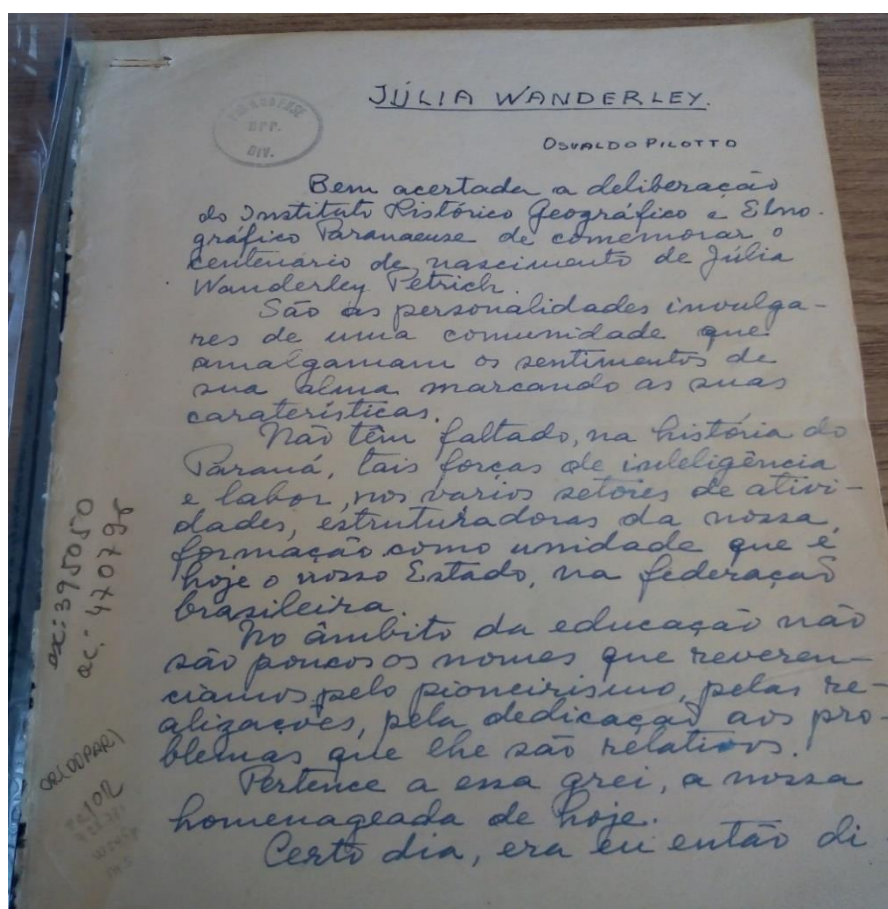 JÚLIA WANDERLEY.
OSVALDO PILOTTO
Bem acertada a deliberação
do Instituto Histórico Geográfico e Etno-
gráfico Paranaense de comemorar o
centenário de nascimento de Júlia
Wanderley Petrich.
São as personalidades invulga-
res de uma comunidade que
amalgamam os sentimentos de
sua alma marcando as suas
caraterísticas.
Não têm faltado, na história do
Paraná, tais forças de inteligência
e labor, nos varios setores de ativi-
dades, estruturadoras da nossa
formação como unidade que é
hoje o nosso Estado, na federação
brasileira.
No âmbito da educação não
são poucos os nomes que reveren-
ciamos pelo pioneirismo, pelas re-
alizações, pela dedicação aos pro-
blemas que lhe são relativos.
Pertence a essa grei, a nossa
homenageada de hoje.
Certo dia, era eu então di
ex: 395050
ac.: 470795
DIV.